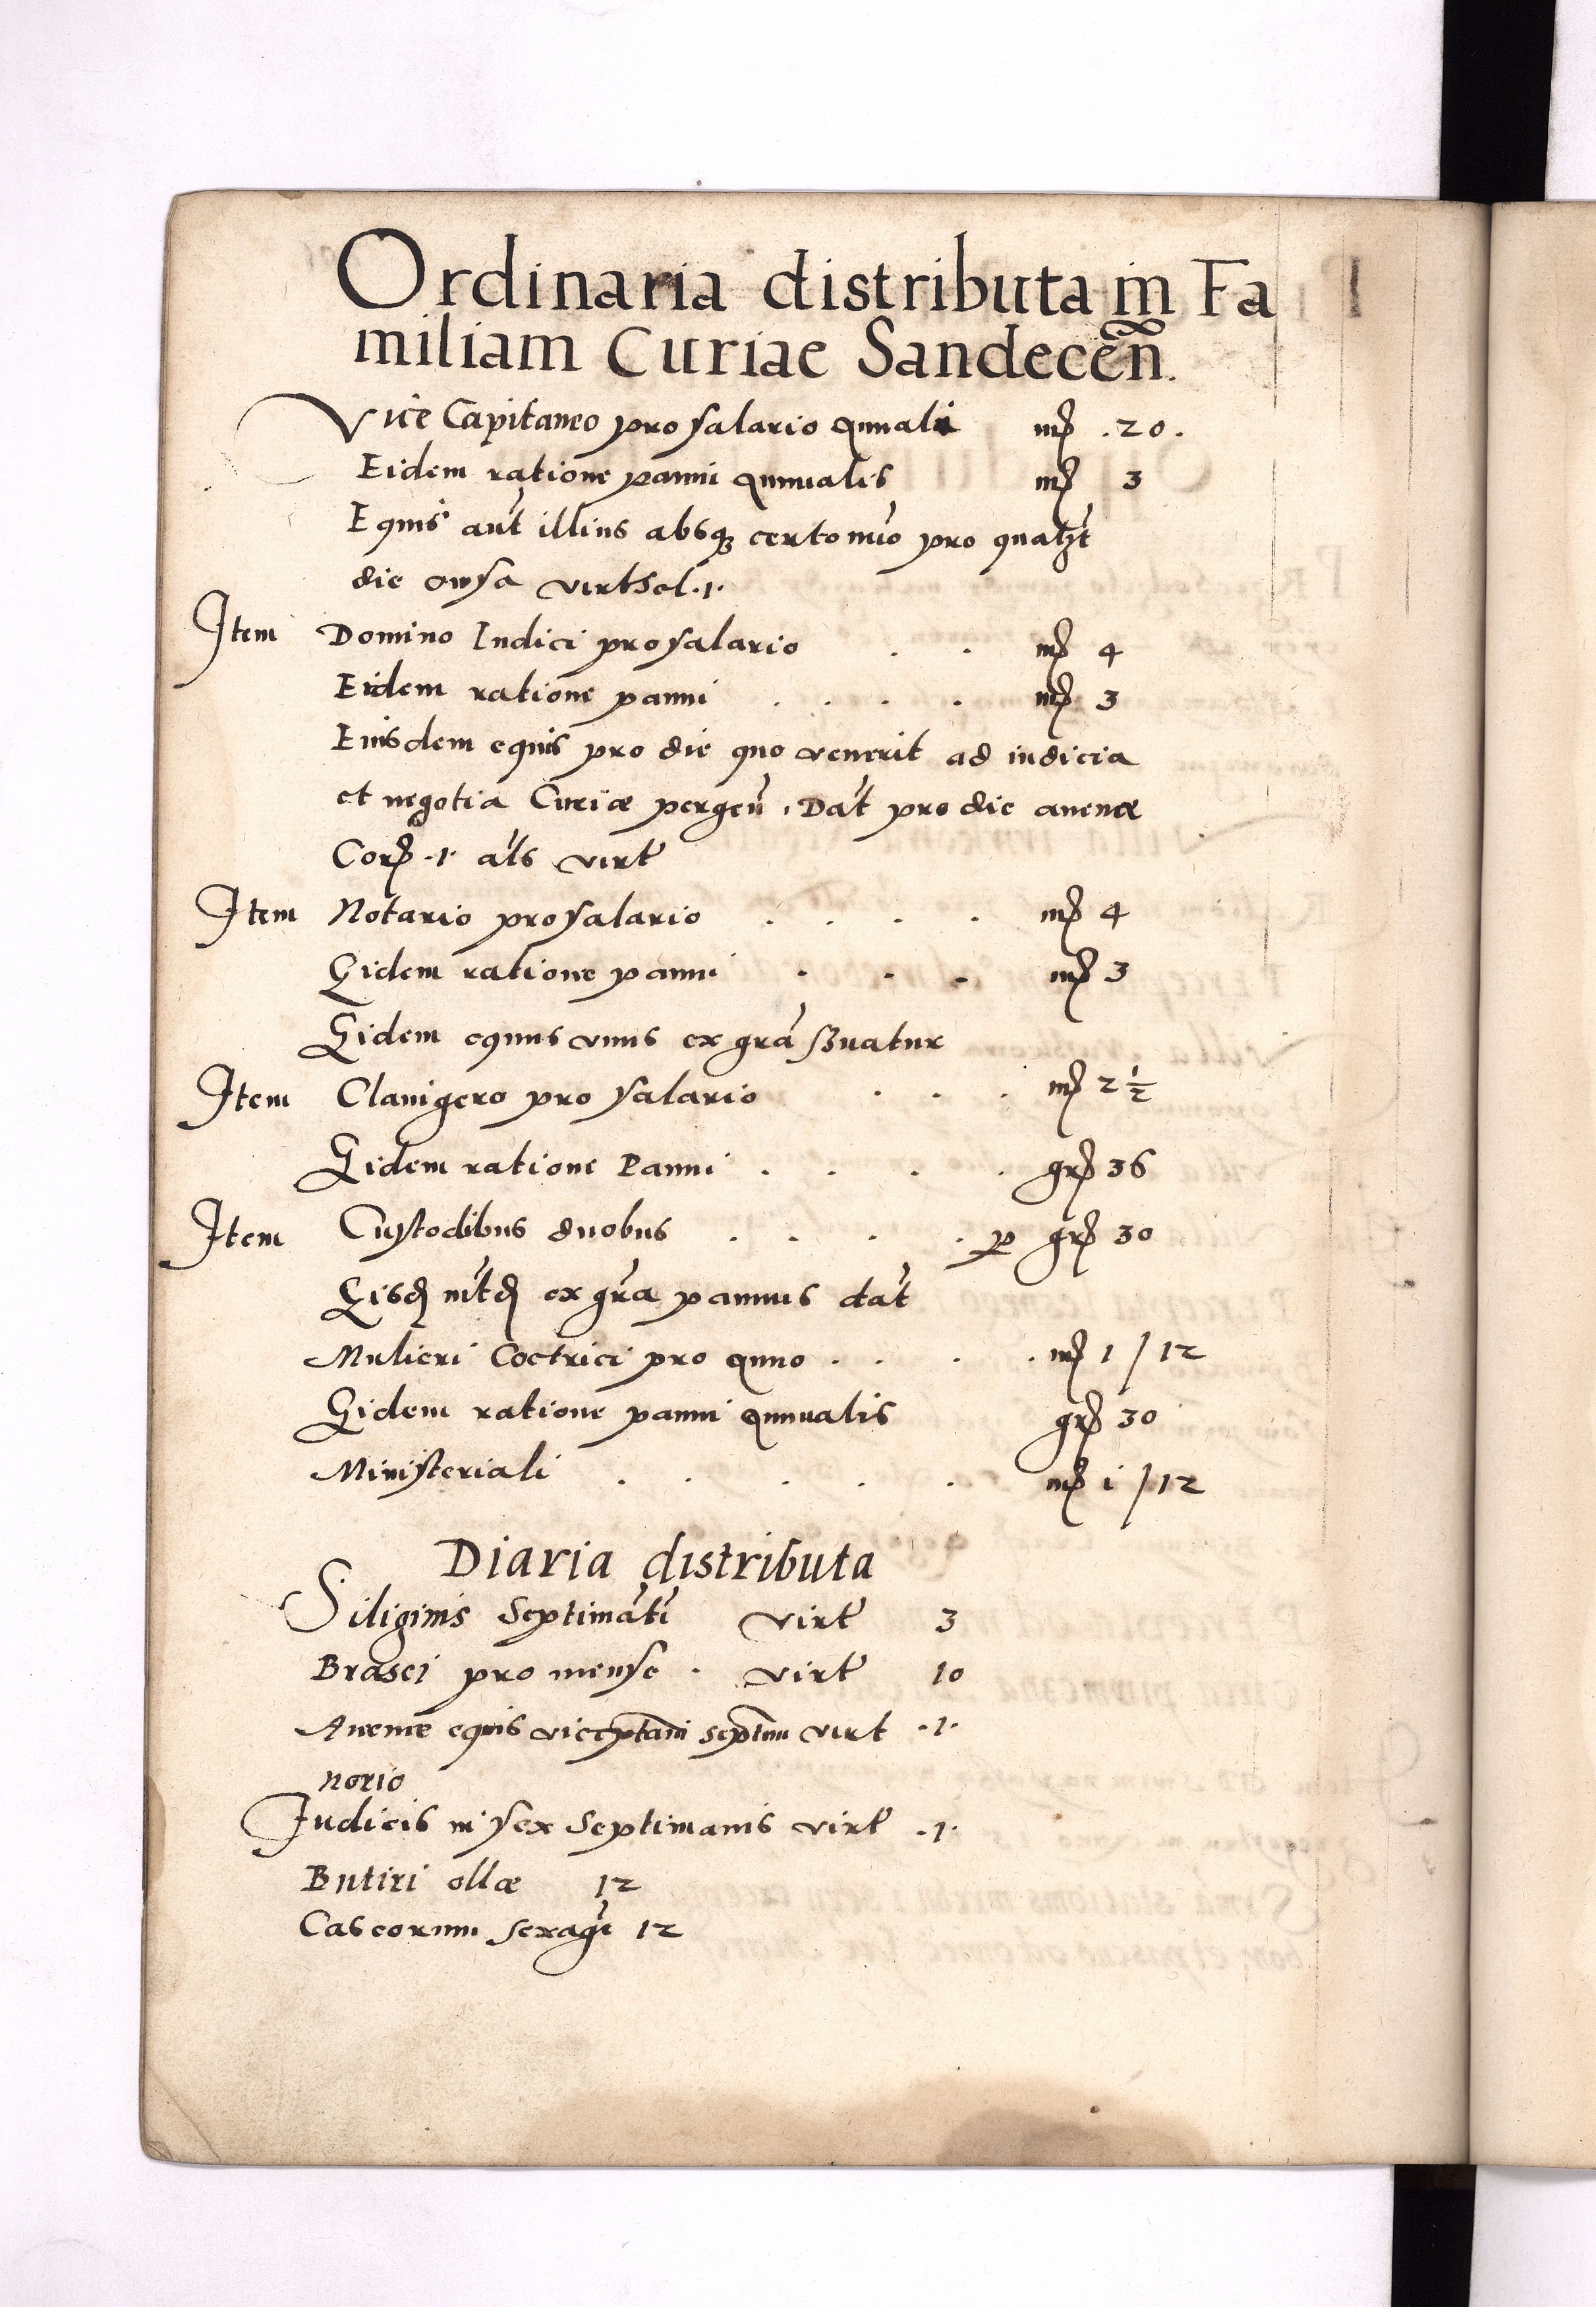 Ordinaria distributa in Fa
miliam Curiae Sandecen̄.
Vice Capitaneo pro salario annuali mr̄ .20.
Eidem ratione panni annualis mr̄ 3
Equis aut̄ illius absq certo nu̅o pro qualz̄t
die avysa virt̄
Item Domino Iudici pro salario . . mr̄ 4
Eidem ratione panni . . . . mr̄ 3
Eiusdem equis pro die quo venerit ad iudicia
et negotia Curiæ pergen̄. Dat̄ pro die avenæ
Cor̄ .1. al̄s virt̄
Item Notario pro salario . . . . mr̄ 4
Eidem ratione panni . . . mr̄ 3
Eidem equus vnus ex gra̅ ßuatur
Item Clauigero pro salario . . . mr̄ 2 1/2
Eidem ratione Panni . . . . gr̄ 36
Item Custodibus duobus . . . . p gr̄ 30
Eisd ex gr̄a pannus dat̄
Mulieri Coctrici pro anno . . . . mr̄ 1 / 12
Eidem ratione panni annualis gr̄ 30
Ministeriali . . . . . mr̄ i / 12
Diaria distributa
Siliginis Septimat̄i virt̄ 3
Brasei pro mense . virt̄ 10
Auenæ equis vicecptani septim̄ virt .1.
norio
Iudicis in sex Septimanis virt̄ .1.
Butiri ollæ 12
Caseorum sexag̅ 12